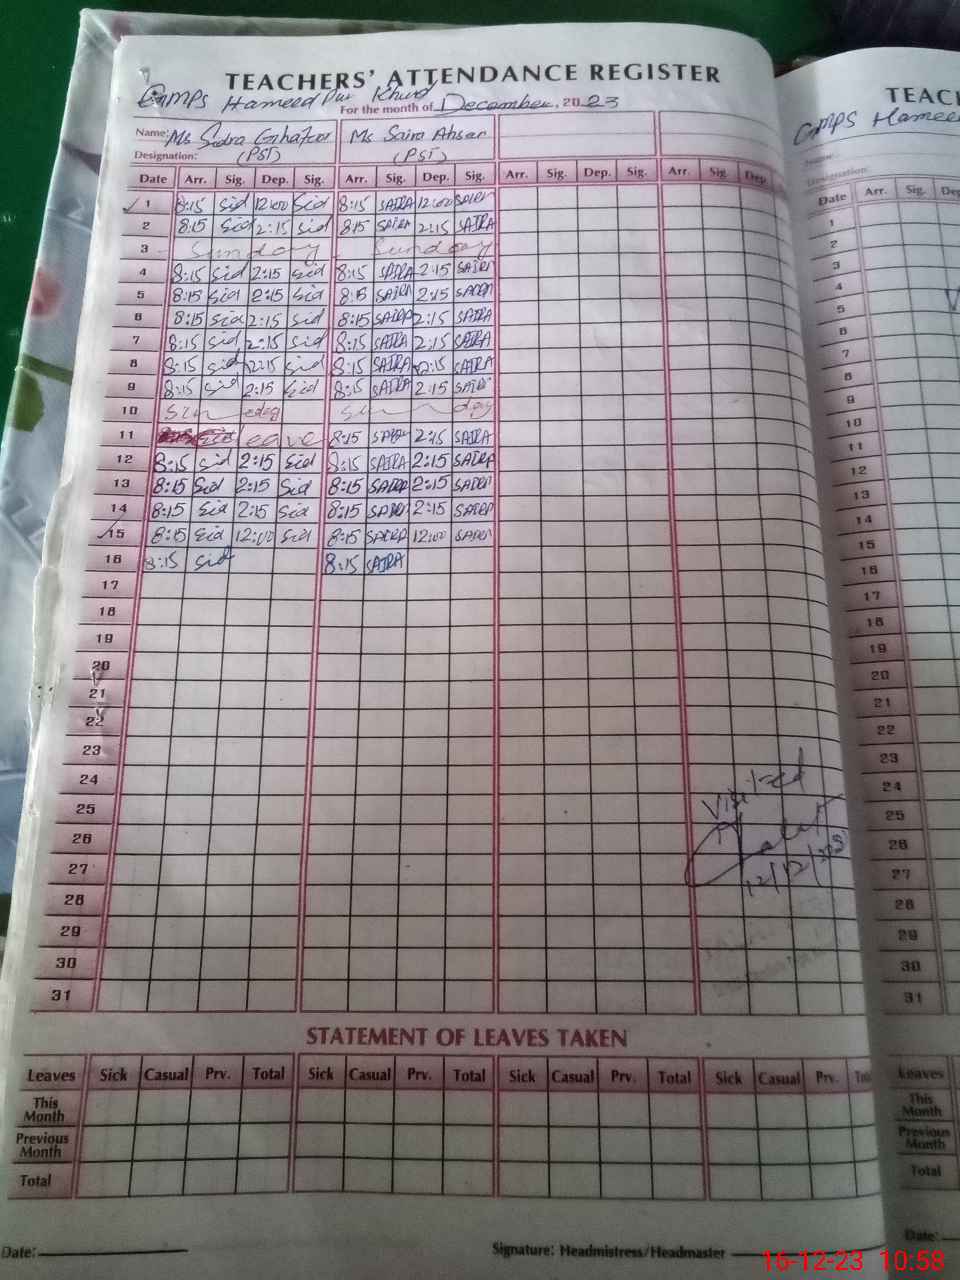 TEACHERS' ATTENDANCE REGISTER
GMPS Hameed Pur Khurd
For the month of December, 2023
Name: Ms Sidra Ghafoor Ms Saira Ahsan
Designation: (PST) (PST)
Date Arr. Sig. Dep. Sig. Arr. Sig. Dep. Sig. Arr. Sig. Dep. Sig. Arr. Sig. Dep
1 8:15 Sid 12:00 Sid 8:15 SAIRA 12:00 SAIRA
2 8:15 Sid 2:15 Sid 8:15 SAIRA 2:15 SAIRA
3 Sunday Sunday
4 8:15 Sid 2:15 Sid 8:15 SAIRA 2:15 SAIRA
5 8:15 Sid 2:15 Sid 8:15 SAIRA 2:15 SAIRA
6 8:15 Sid 2:15 Sid 8:15 SAIRA 2:15 SAIRA
7 8:15 Sid 2:15 Sid 8:15 SAIRA 2:15 SAIRA
8 8:15 Sid 2:15 Sid 8:15 SAIRA 2:15 SAIRA
9 8:15 Sid 2:15 Sid 8:15 SAIRA 2:15 SAIRA
10 Sunday Sunday
11 leave 8:15 SAIRA 2:15 SAIRA
12 8:15 Sid 2:15 Sid 8:15 SAIRA 2:15 SAIRA
13 8:15 Sid 2:15 Sid 8:15 SAIRA 2:15 SAIRA
14 8:15 Sid 2:15 Sid 8:15 SAIRA 2:15 SAIRA
15 8:15 Sid 12:00 Sid 8:15 SAIRA 12:00 SAIRA
16 8:15 Sid 8:15 SAIRA
17
18
19
20
21
22
23
24
25
26
27
28
29
30
31
Visited
12/12/2023
STATEMENT OF LEAVES TAKEN
Leaves Sick Casual Prv. Total Sick Casual Prv. Total Sick Casual Prv. Total Sick Casual Prv.
This Month
Previous Month
Total
Date:
Signature: Headmistress/Headmaster
TEAC
GMPS Hameed
Name:
Designation:
Date Arr. Sig. Dep
1
2
3
4
5
6
7
8
9
10
11
12
13
14
15
16
17
18
19
20
21
22
23
24
25
26
27
28
29
30
31
Leaves
This Month
Previous Month
Total
Date:
16-12-23 10:58